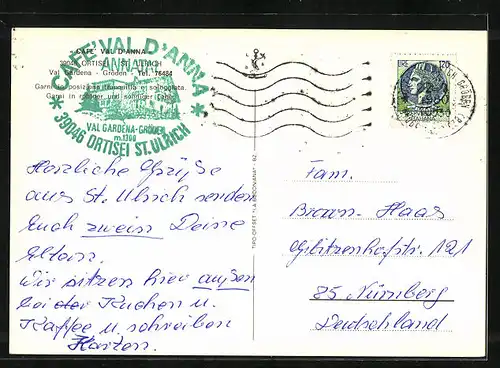 CAFE' VAL D'ANNA
39046 ORTISEI ST. ULRICH
Val Gardena - Gröden Tel. 76484
Garni in posizione tranquilla e soleggiata.
Garni in ruhiger und sonniger Lage.
* CAFE' VAL D'ANNA *
ANNATAL
VAL GARDENA-GRÖDEN
m. 1300
39046 ORTISEI ST. ULRICH
Herzliche Grüße
aus St. Ulrich senden
Euch zweien Deine
Eltern.
Wir sitzen hier außen
bei Kuchen u.
Kaffee u. schreiben
Karten.
TIPO OFFSET "LA BODONIANA" - BZ
LIRE 120
1980
Fam.
Braun-Haas
Gibitzenhofstr. 121
85 Nürnberg
Deutschland